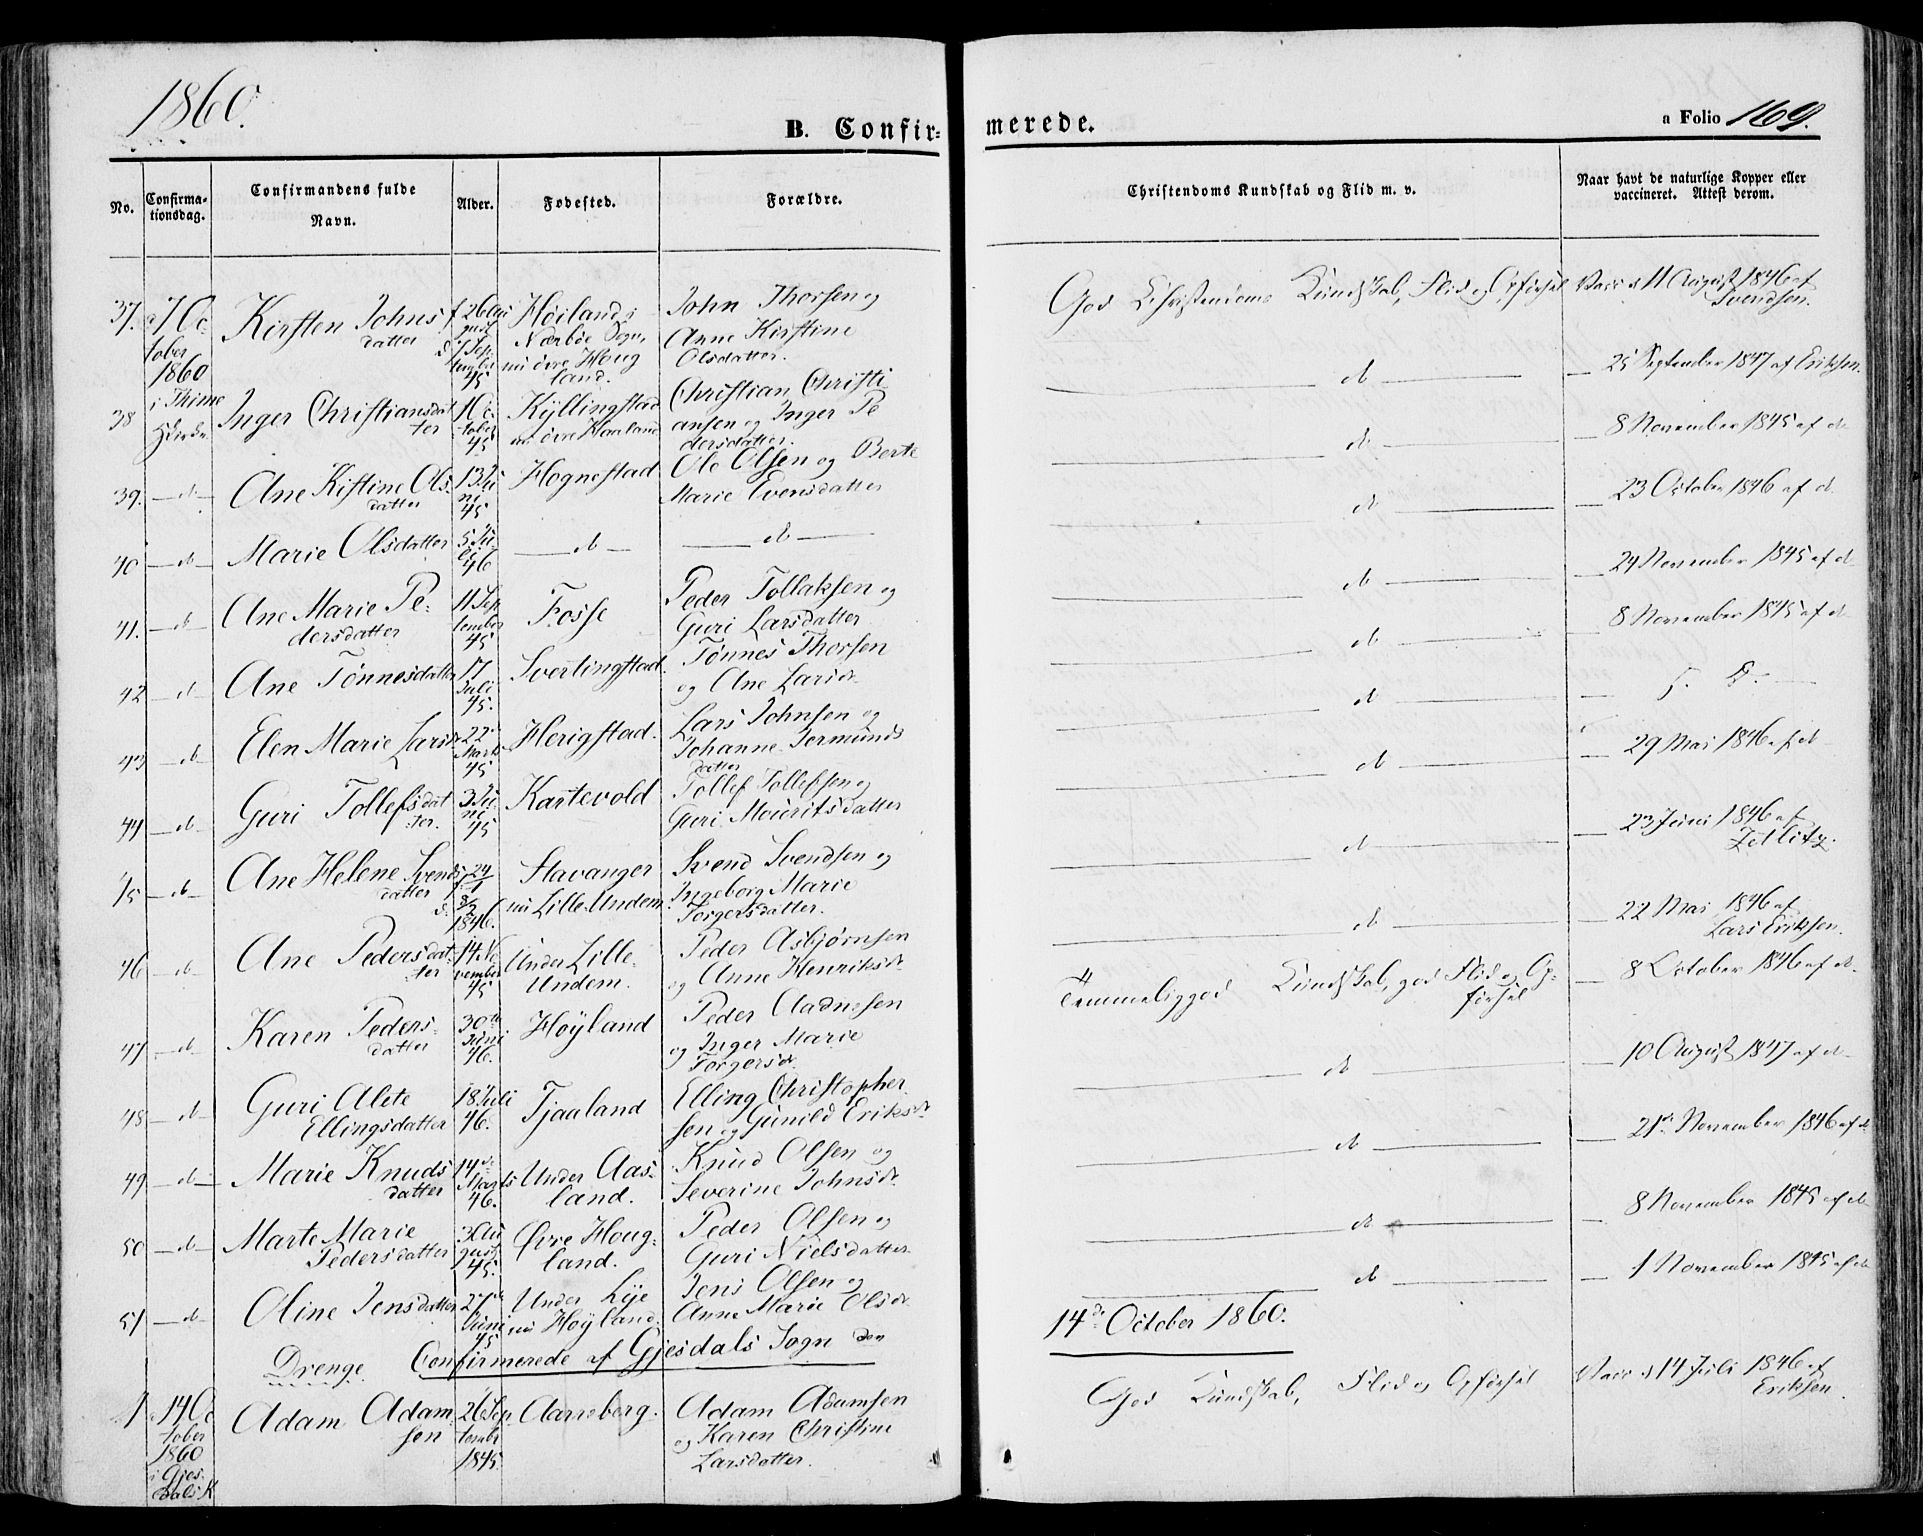 1860.
B. Confir=
merede.
a Folio 169.
No.
Confirma-
tionsdag.
Confirmandens fulde
Navn.
Alder.
Fødested.
Forældre.
Christendoms Kundskab og Flid m. v.
Naar havt de naturlige Kopper eller
vaccineret. Attest derom.
37. 7 Oc-
tober
1860
i Thime
Kirsten Johns
datter
f 26 Au
gust
d 7 Sep
tember
45
Høiland i
Nærbøe Sogn,
nu övre Houg
land.
John Thorsen og
Anne Kirstine
Olsdatter.
God Christendoms Kundskab, Flid og Opførsel
Vacc. d 11 August 1846 af
Svendsen.
38
Inger Christiansdat
ter
1 Oc
tober
45
Kÿllingstad
nu övre Haaland
Christian Christi
ansen og Inger Pe
dersdatter.
do
25 September 1847 af Eriksen.
39. do
Ane Kistine Ols
datter
13 Ju
ni
45
Hognestad
Ole Olsen og Berte
Marie Evensdatter
do
8 November 1845 af do
40 do
Marie Olsdatter
5 Ju
li
46
do
do
do
23 October 1846 af do
41. do
Ane Marie Pe=
dersdatter
11 Sep
tember
45
Fosse
Peder Tollaksen og
Guri Larsdatter
do
24 November 1845 af do
42 do
Ane Tönnesdatter
17
Juli
45.
Svertingstad.
Tönnes Thorsen
og Ane Larsdr
do
8 November 1845 af do
43 do
Elen Marie Larsdr
22
Marts
45
Herigstad.
Lars Johnsen og
Johanne Jermunds
datter
do
44 do
Guri Tollefsdat
ter.
3 Ju
ni
45
Kartevold
Tollef Tollefsen og
Guri Mouritsdatter
do
29 Mai 1846 af do
45 do
Ane Helene Svends
datter
f. 24/1
d. 8/2
1846.
Stavanger
nu Lille Undem
Svend Svendsen og
Ingeborg Marie
Torgersdatter.
do
23 Juni 1846 af
Zetlitz.
46 do
Ane Pedersdat-
ter
14 No
vember
45
Under Lille
Undem.
Peder Asbjørnsen
og Anne Henriksdr
do
22 Mai 1846 af
Lars Eriksen.
47 do
Karen Peders-
datter
30te
Juni
46.
Høÿland
Peder Aadnesen
og Inger Marie
Torgersdr.
Temmelig god Kundskab, god Flid og Op-
førsel
8 October 1846 af do
48 do
Guri Alete
Ellingsdatter
18 Juli
46.
Tjaaland
Elling Christopher
sen og Gunild Eriksdr
do
10 August 1847 af do
49 do
Marie Knuds
datter
14de
Marts
46.
Under Aas-
land.
Knud Olsen og
Severine Johnsdr
do
21de November 1846 af do
50 do
Marte Marie
Pedersdatter
3 Au
gust
45.
Øvre Houg-
land.
Peder Olsen og
Guri Nielsdatter
do
8 November 1845 af do
51 do
Oline Jensdatter
27de
Juni
45
Under Lÿe
nu Høÿland.
Jens Olsen og
Anne Marie Olsdr
do
1 November 1845 af do
Drenge Confirmerede af Gjesdals Sogn den
14de October 1860.
1 14 Oc
tober
1860
i Gjes-
dals K
Adam Adam
sen
26 Sep
tembr
1845.
Aarreberg.
Adam Adamsen
og Karen Christine
Larsdatter.
God Kundskab, Flid og Opførsel
Vacc. d 14 Juli 1846 af
Eriksen.